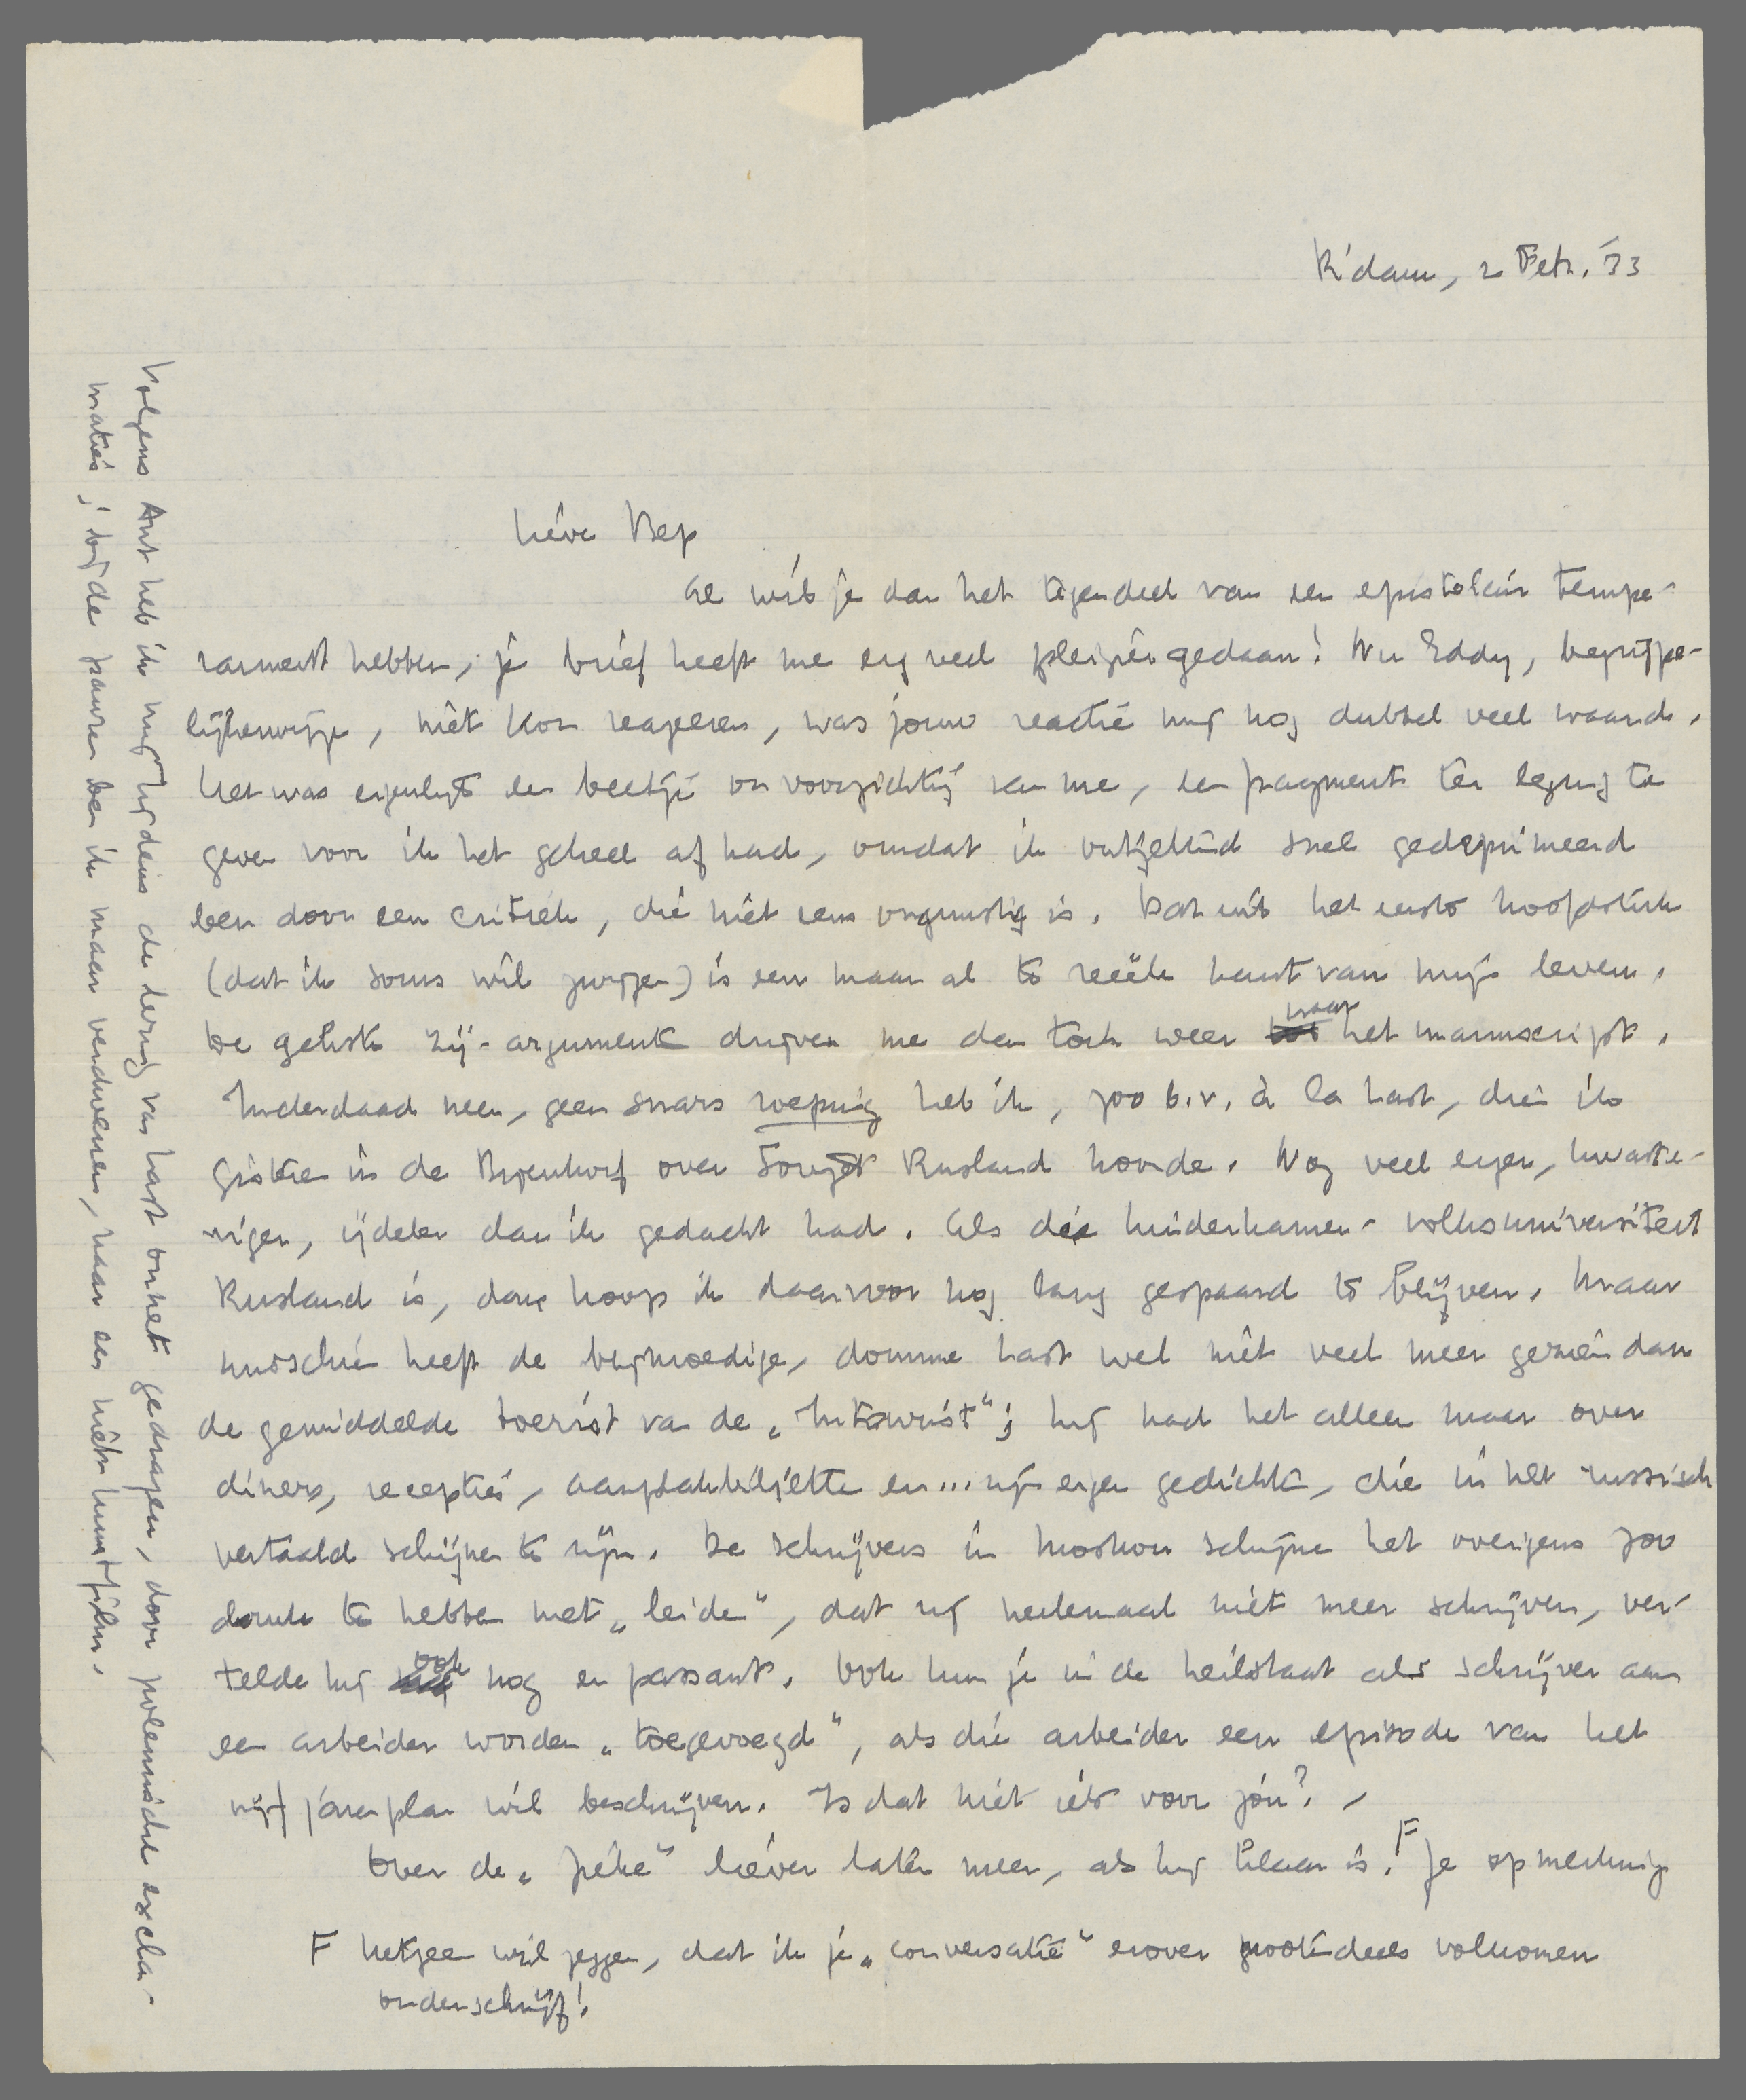 R'dam, 2 Febr. '33
Lieve Bep
Al wil je dan het tegendeel van een epistolair tempe-
rament hebben, je brief heeft me erg veel plezier gedaan! Nu Eddy, begrijpe-
lijkerwijze, niet kon reageeren, was jouw reactie mij nog dubbel veel waard.
Het was eigenlijk een beetje onvoorzichtig van me, een fragment ter lezing te
geven voor ik het geheel af had, omdat ik ontzettend snel gedeprimeerd
ben door een critiek, die niet eens ongunstig is. Dat uit het eerste hoofdstuk
(dat ik soms wil zwijgen) is een maar al te reëele kant van mijn leven.
De gekste zij-argumenten drijven me dan toch weer naar het manuscript.
Inderdaad neen, geen snars roeping heb ik, zoo b.v. à la Last, die ik
gisteren in de Bijenkorf over Sovjet Rusland hoorde. Nog veel erger, kwaste-
riger, ijdeler dan ik gedacht had. Als die kinderkamer-volksuniversiteit
Rusland is, dan hoop ik daarvoor nog lang gespaard te blijven. Maar
misschien heeft de blijmoedige, domme Last wel niet veel meer gezien dan
de gemiddelde toerist van de „Intourist"; hij had het alleen maar over
diners, recepties, aanplakbiljetten en... zijn eigen gedichten, die in het russisch
vertaald schijnen te zijn. De schrijvers in Moskou schijnen het overigens zoo
druk te hebben met „leiden", dat zij heelemaal niet meer schrijven, ver-
telde hij ook nog en passant. Ook kun je in de heilstaat als schrijver aan
een arbeider worden „toegevoegd", als die arbeider een episode van het
vijfjarenplan wil beschrijven. Is dat niet iets voor jou? -
Over de „Piête" liever later meer, als hij klaar is. F Je opmerking
F hetgeen wil zeggen, dat ik je „conversatie" erover grootendeels volkomen
onderschrijf!
Volgens Ant heb ik mij tijdens de lezing van Last onnet gedragen, door polemische excla-
maties; bij de pauze ben ik maar verdwenen, naar een niets kunstfilm.